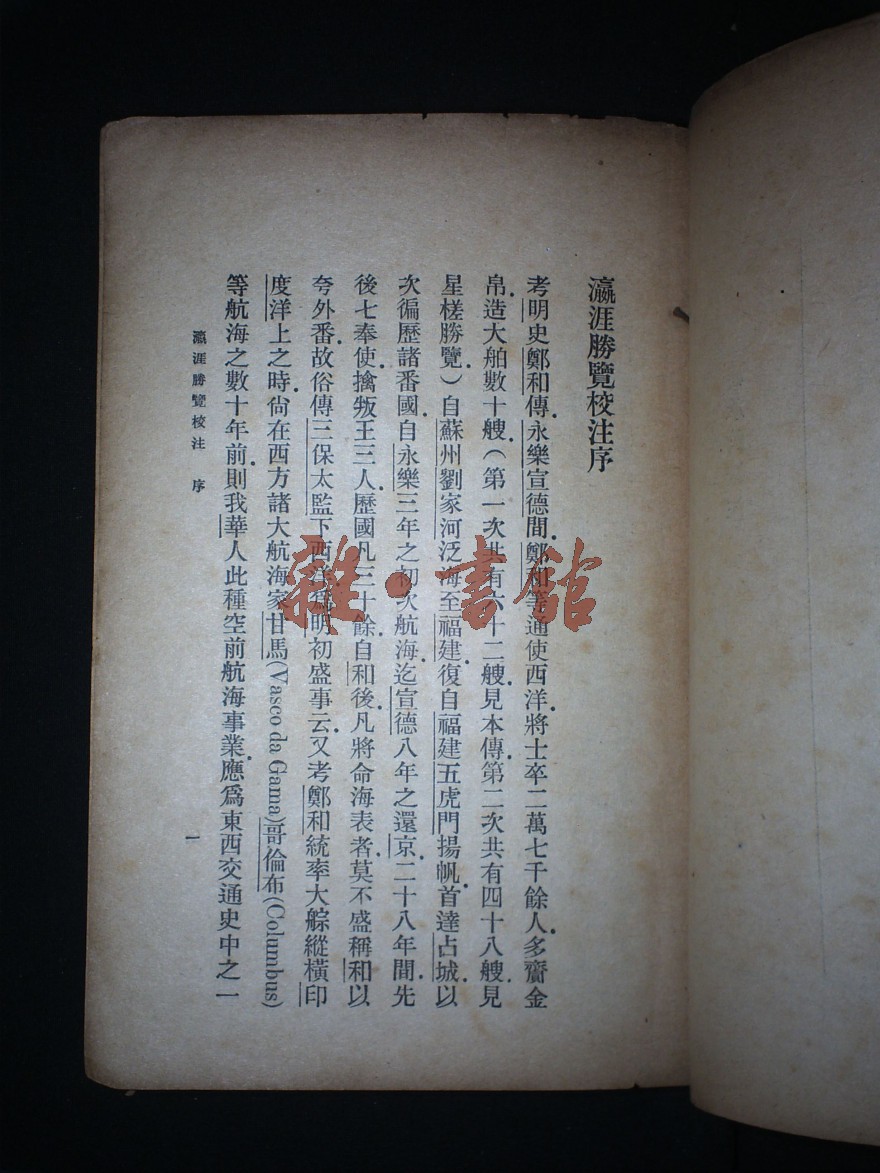 瀛涯勝覽校注序
考明史鄭和傳.永樂宣德間.鄭和等通使西洋.將士卒二萬七千餘人.多齎金
帛.造大舶數十艘.(第一次共有六十二艘.見本傳.第二次共有四十八艘.見
星槎勝覽.)自蘇州劉家河泛海至福建.復自福建五虎門揚帆.首達占城.以
次徧歷諸番國.自永樂三年之初次航海.迄宣德八年之還京.二十八年間.先
後七奉使.擒叛王三人.歷國凡三十餘.自和後.凡將命海表者.莫不盛稱和以
夸外番.故俗傳三保太監下西洋.爲明初盛事云.又考鄭和統率大䑸縱橫印
度洋上之時.尙在西方諸大航海家甘馬(Vasco da Gama)哥倫布(Columbus)
等航海之數十年前.則我華人此種空前航海事業.應爲東西交通史中之一
瀛涯勝覽校注 序
一
雜·書館